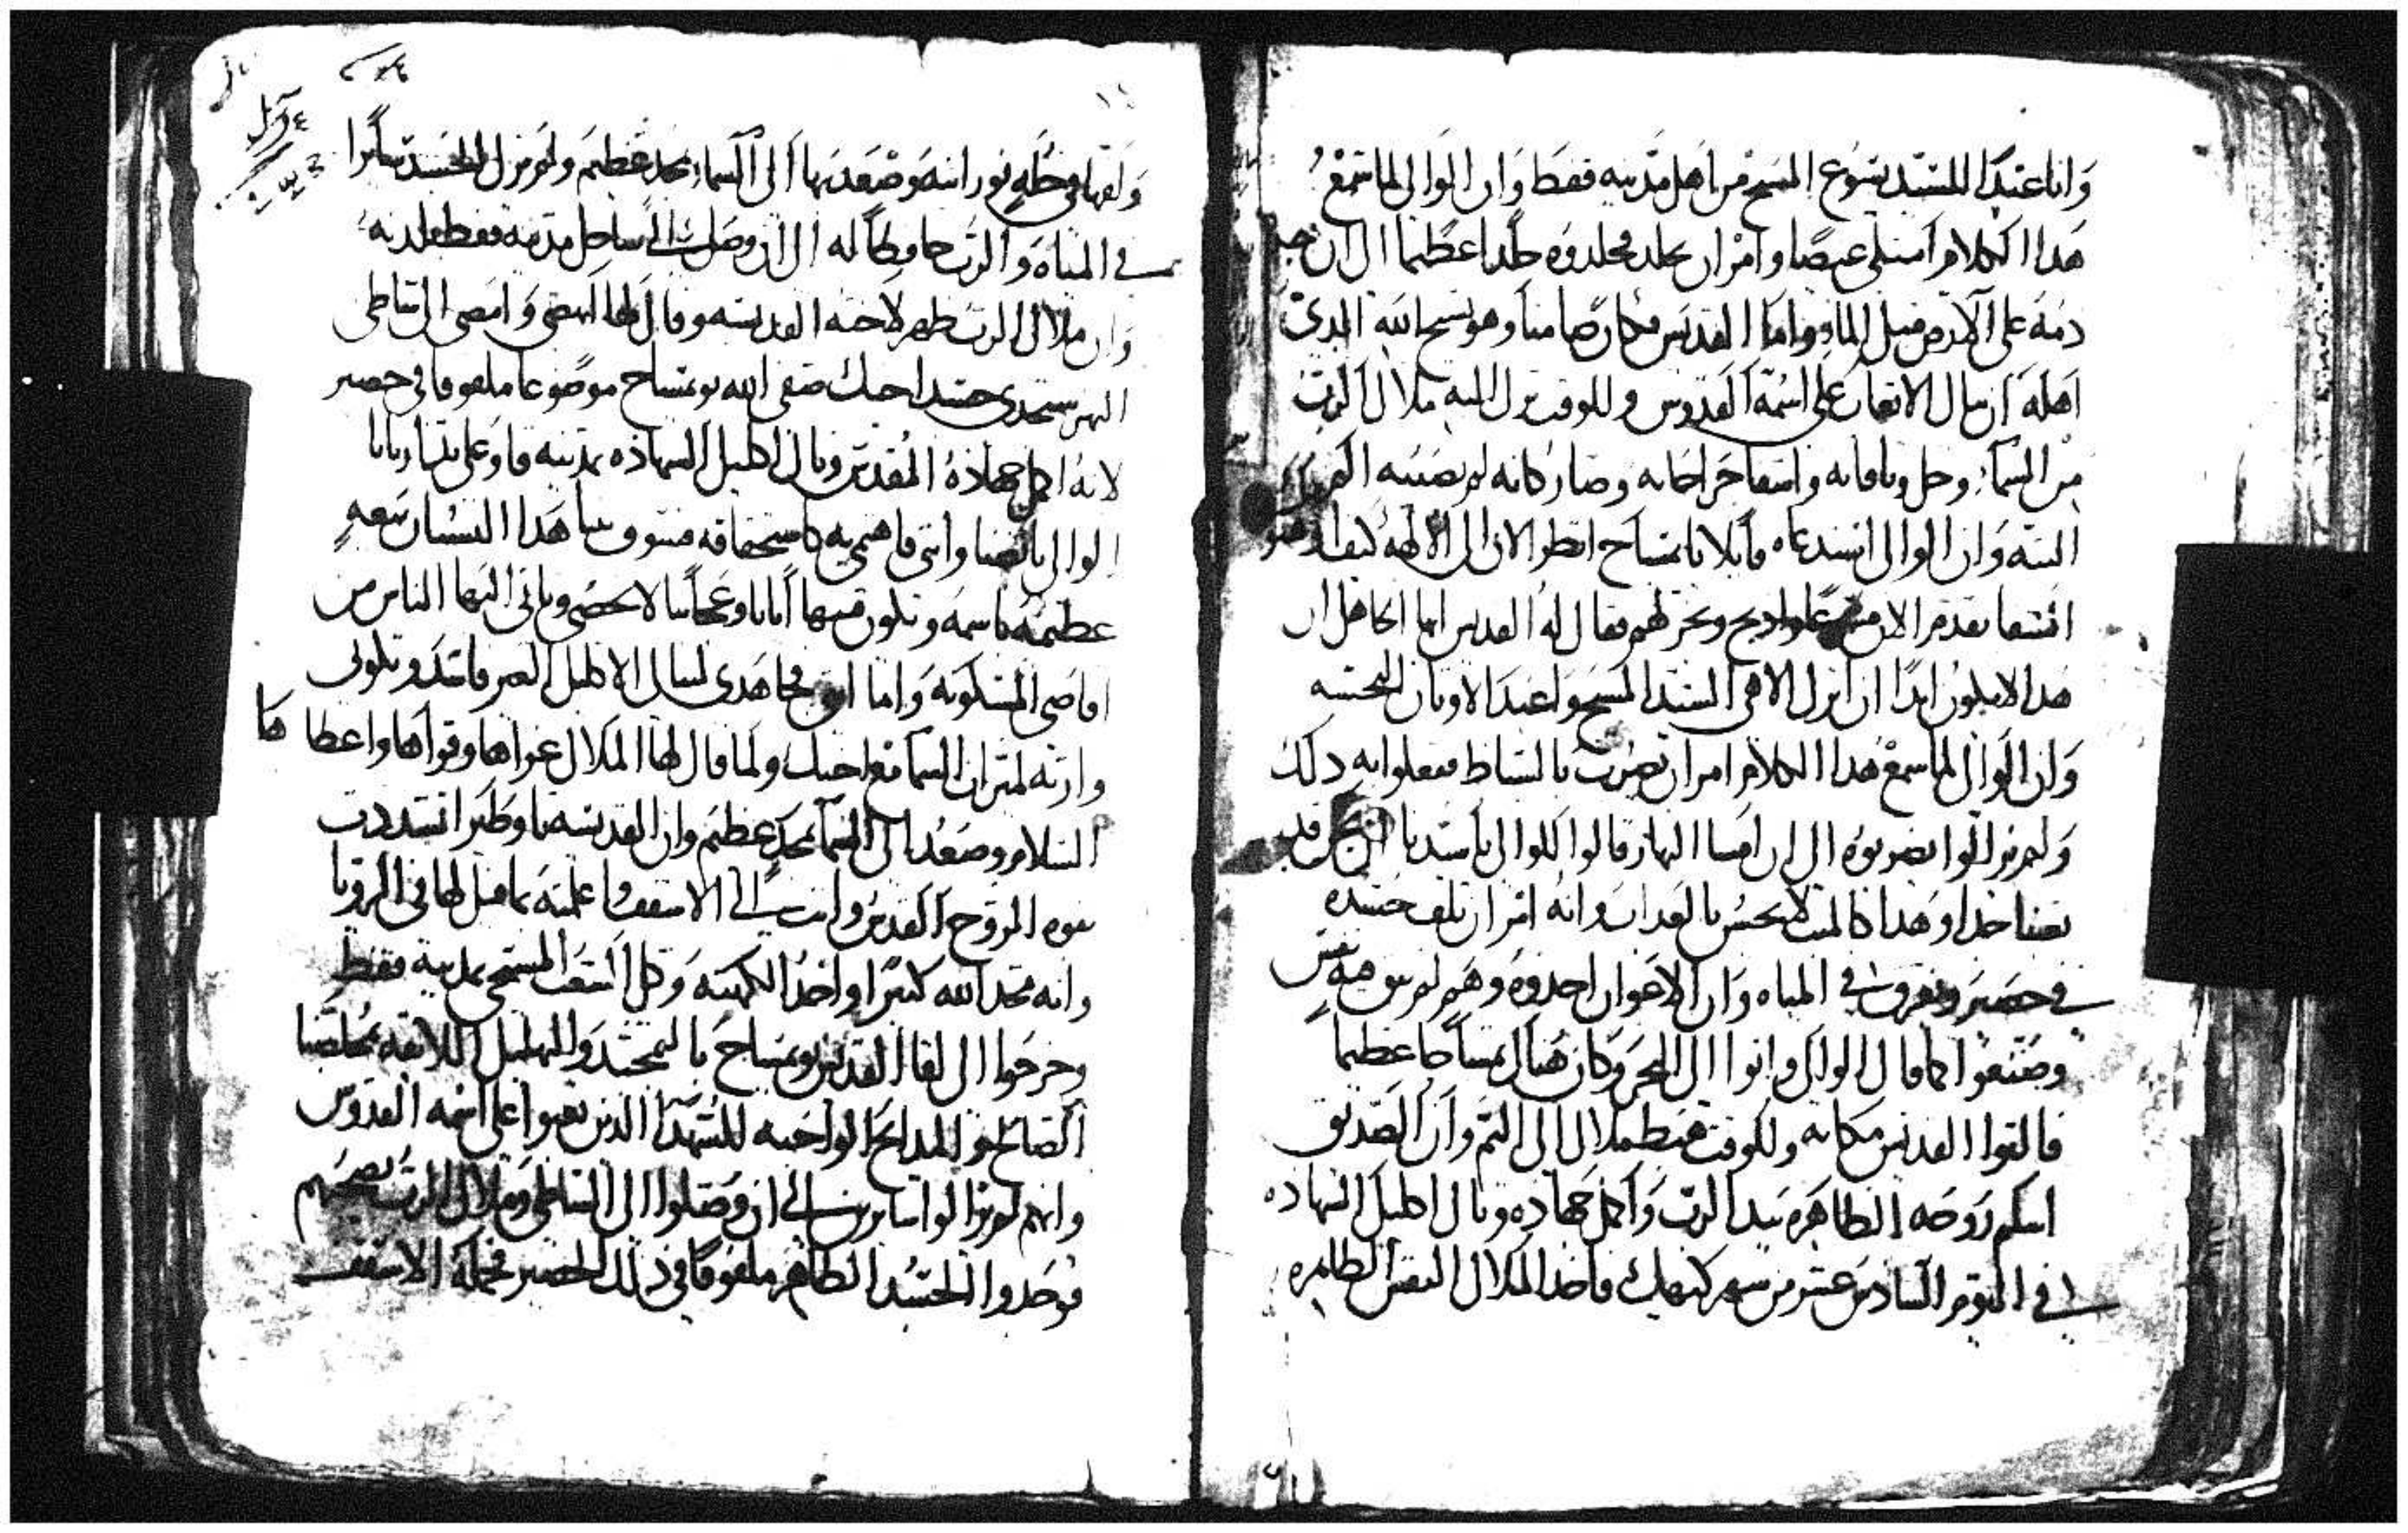 وانا عبدا للسيد يسوع المسيح من اهل مدينه قفط وان الوالي لما سمع
هدا الكلام امتلى غيضا وامر ان يجلد فجلدوه جلدا عظيما الى ان جرى
دمه على الارض متل الماء واما القديس فكان صامتا وهو يسبح الله الدي
اهله ان ينال الاتعاب على اسمه القدوس وللوقت نزل اليه ملاك الرب
من السماء وحل وتاقاته واشفا جراحاته وصار كانه لم يصيبه الم
البته وان الوالي استدعاه قايلا يا بمساح انظر الان الى الالهه كيف
اشفا تقدم الان وادبح وبخر لهم فقال له القديس ايها الجاهل ان
هدا لا يكون ابدا ان اترك الاهي السيد المسيح واعبد الاوتان النجسه
وان الوالي لما سمع هدا الكلام امر ان يضرب بالسياط ففعلوا به دلك
ولم يزالوا يضربوه الى ان امسا النهار قالوا للوالي يا سيدنا نحن قد
تعبنا جدا وهدا كالميت لا يحس بالعداب وانه امر ان يلف جسده
في حصير ويغرق في المياه وان الاعوان اخدوه وهم لم يبق فيه نفس
وصنعوا كما قال الوالي واتوا الى البحر وكان هناك تمساحا عظيما
فالقوا القديس مكانه وللوقت هبط ملاك الى اليم وان الصديق
اسلم روحه الطاهره بيد الرب واكمل جهاده ونال اكليل الشهاده
في اليوم السادس عشر من شهر كيهك فاخد الملاك النفس الطاهره
ولفها في حله نورانيه وصعد بها الى السماء بمجد عظيم ولم يزل الجسد سايرا
في المياه والرب حافظا له الى ان وصل الى ساحل مدينه قفط بلدته
وان ملاك الرب ظهر لاخته القديسه وقال لها انهضي وامضي الى شاطي
النهر ستجدي جسد اخيك صفي الله بو بمساح موضوعا ملفوفا في حصير
لانه اكمل جهاده المقدس ونال اكليل الشهاده بمدينه قاو على يد اريانا
الوالي بانصنا وانتي فاهتمي به كاستحقاقه فسوف يبنا هدا الشان بيعه
عظيمه باسمه وتكون فيها ايات وعجايبا لا تحصى وياتي اليها الناس من
اقاصي المسكونه واما انتي فجاهدي لتنالي الاكليل الغير فاسد وتكوني
وارته لميراث السما مع اخيك ولما قال لها الملاك عزاها وقواها واعطاها
السلام وصعد الى السما بمجد عظيم وان القديسه تاوطكرا تشددت
بقوه الروح القدس واتت الى الاسقف واعلمته بما قيل لها في الرويا
وانه مجد الله كتيرا واخد الكهنه وكل الشعب المسيحي بمدينه قفط
وخرجوا الى لقا القديس بو بمساح بالتمجيد والتهليل اللايقه بمخلصنا
الصالح والمدايح الواجبه للشهدا الدين تعبوا على اسمه القدوس
وانهم لم يزالوا سايرين الى ان وصلوا الى الشاطي وملاك الرب يصحبهم
فوجدوا الجسد الطاهر ملفوفا في دلك الحصير فحمله الاسقف